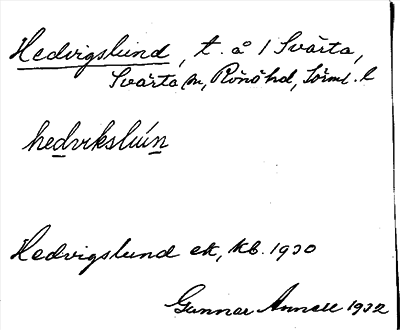 Hedvigslund, t. å 1 Svärta,
Svärta sn, Rönö hd, Sörml. l
hedvikslún
Hedvigslund ek, kb. 1930
Gunnar Annell 1932